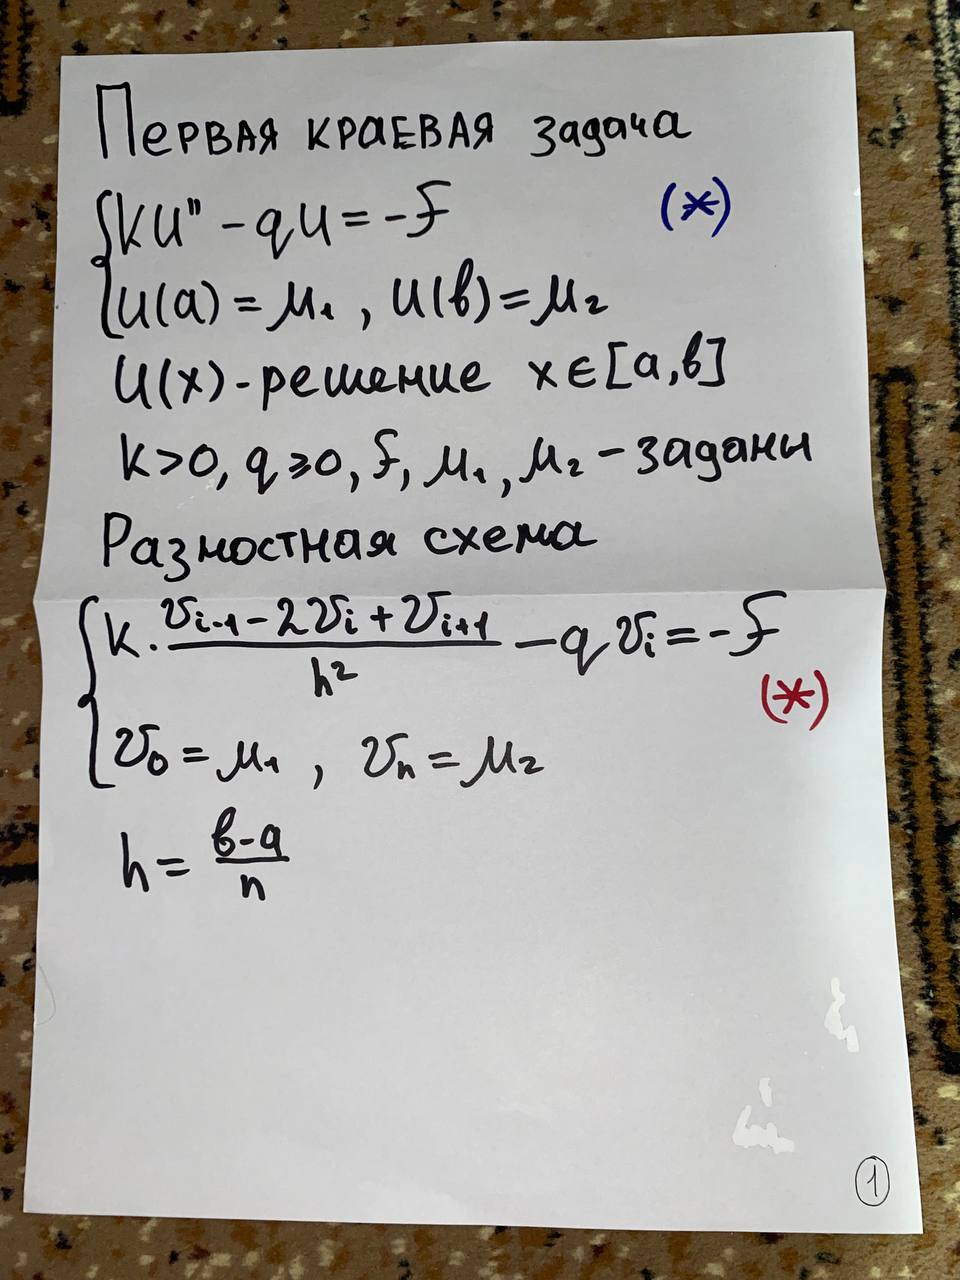 Первая краевая задача
{ku'' - qu = -f (*)
u(a) = μ₁, u(b) = μ₂
u(x) - решение x ∈ [a, b]
k > 0, q ≥ 0, f, μ₁, μ₂ - заданы
Разностная схема
{k · (v_{i-1} - 2v_i + v_{i+1}) / h² - q v_i = -f
(*)
v₀ = μ₁, v_n = μ₂
h = (b - a) / n
1